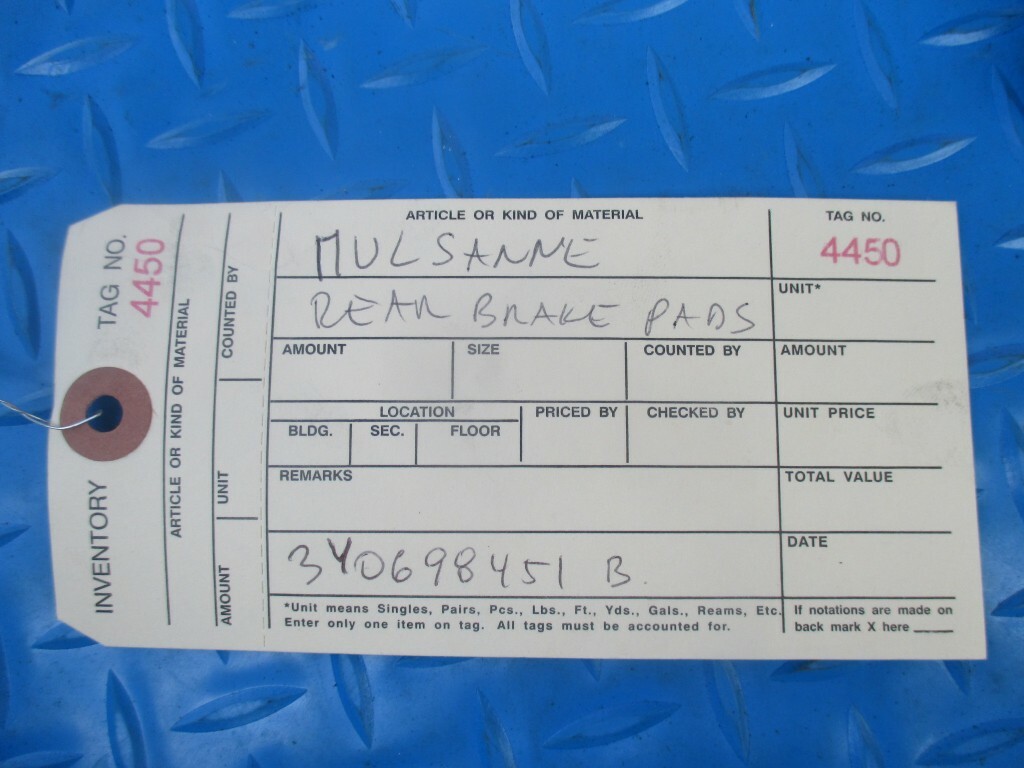 TAG NO.
4450
INVENTORY
ARTICLE OR KIND OF MATERIAL
COUNTED BY
UNIT
AMOUNT
ARTICLE OR KIND OF MATERIAL
MULSANNE
REAR BRAKE PADS
TAG NO.
4450
UNIT*
AMOUNT SIZE COUNTED BY AMOUNT
LOCATION PRICED BY CHECKED BY UNIT PRICE
BLDG. SEC. FLOOR
REMARKS TOTAL VALUE
3Y0698451 B. DATE
*Unit means Singles, Pairs, Pcs., Lbs., Ft., Yds., Gals., Reams, Etc.
Enter only one item on tag. All tags must be accounted for.
If notations are made on
back mark X here